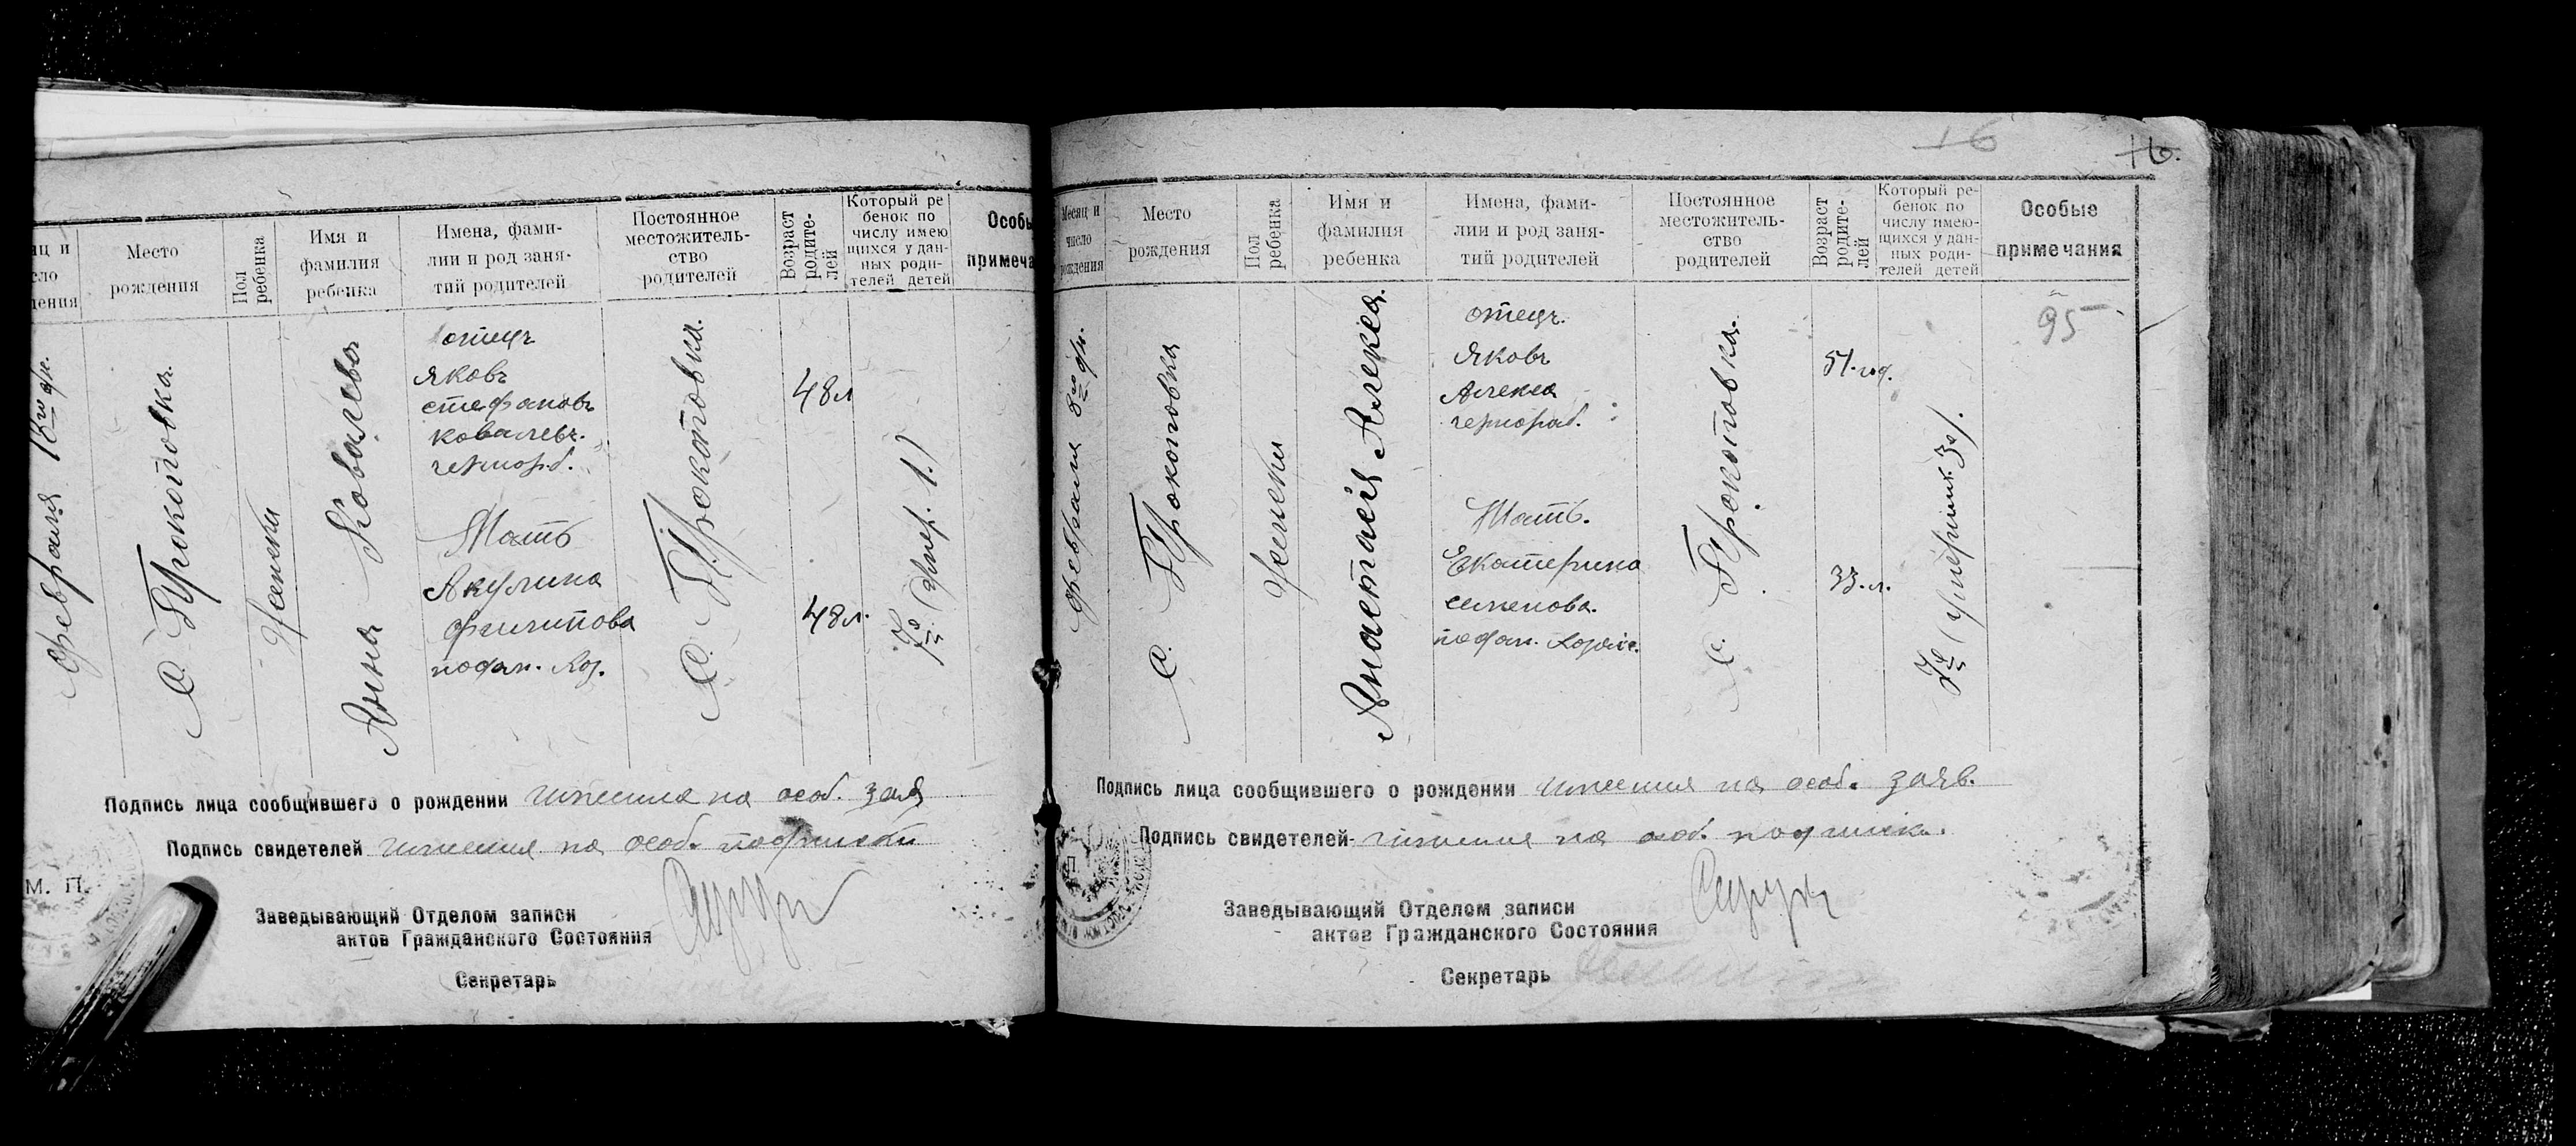 яц и
сло
дения
Место
рождения
Пол
ребенка
Имя и
фамилия
ребенка
Имена, фами-
лии и род заня-
тий родителей
Постоянное
местожитель-
ство
родителей
Возраст
родите-
лей
Который ре
бенок по
числу имею
щихся у дан-
ных роди-
телей детей
Особы
примеча
февраля 18го дн.
с. Прокоповка.
Женски
Анна Ковалева
отец
Яковъ
Стефановъ
Ковалевъ.
Мать
Акулина
Филипова
с. Прокоповка.
48 л
48 л.
Подпись лица сообщившего о рождении имеется на особ. заяв
Подпись свидетелей имеется на особ. подписки
М. П.
Заведывающий Отделом записи
актов Гражданского Состояния
Секретарь
16
16.
Месяц и
число
рождения
Место
рождения
Пол
ребенка
Имя и
фамилия
ребенка
Имена, фами-
лии и род заня-
тий родителей
Постоянное
местожитель-
ство
родителей
Возраст
родите-
лей
Который ре-
бенок по
числу имею-
щихся у дан-
ных роди-
телей детей
Особые
примечания
февраля 8го дн.
с. Прокоповка
Женски
Анастасія Алекса.
отецъ.
Яковъ
Алекса
чернораб.
Мать.
Екатерина
Семенова.
с. Прокоповка.
51. год.
33. л.
95
Подпись лица сообщившего о рождении имеется на особ. заяв.
Подпись свидетелей имеется на особ. подписк.
П.
Заведывающий Отделом записи
актов Гражданского Состояния
Секретарь